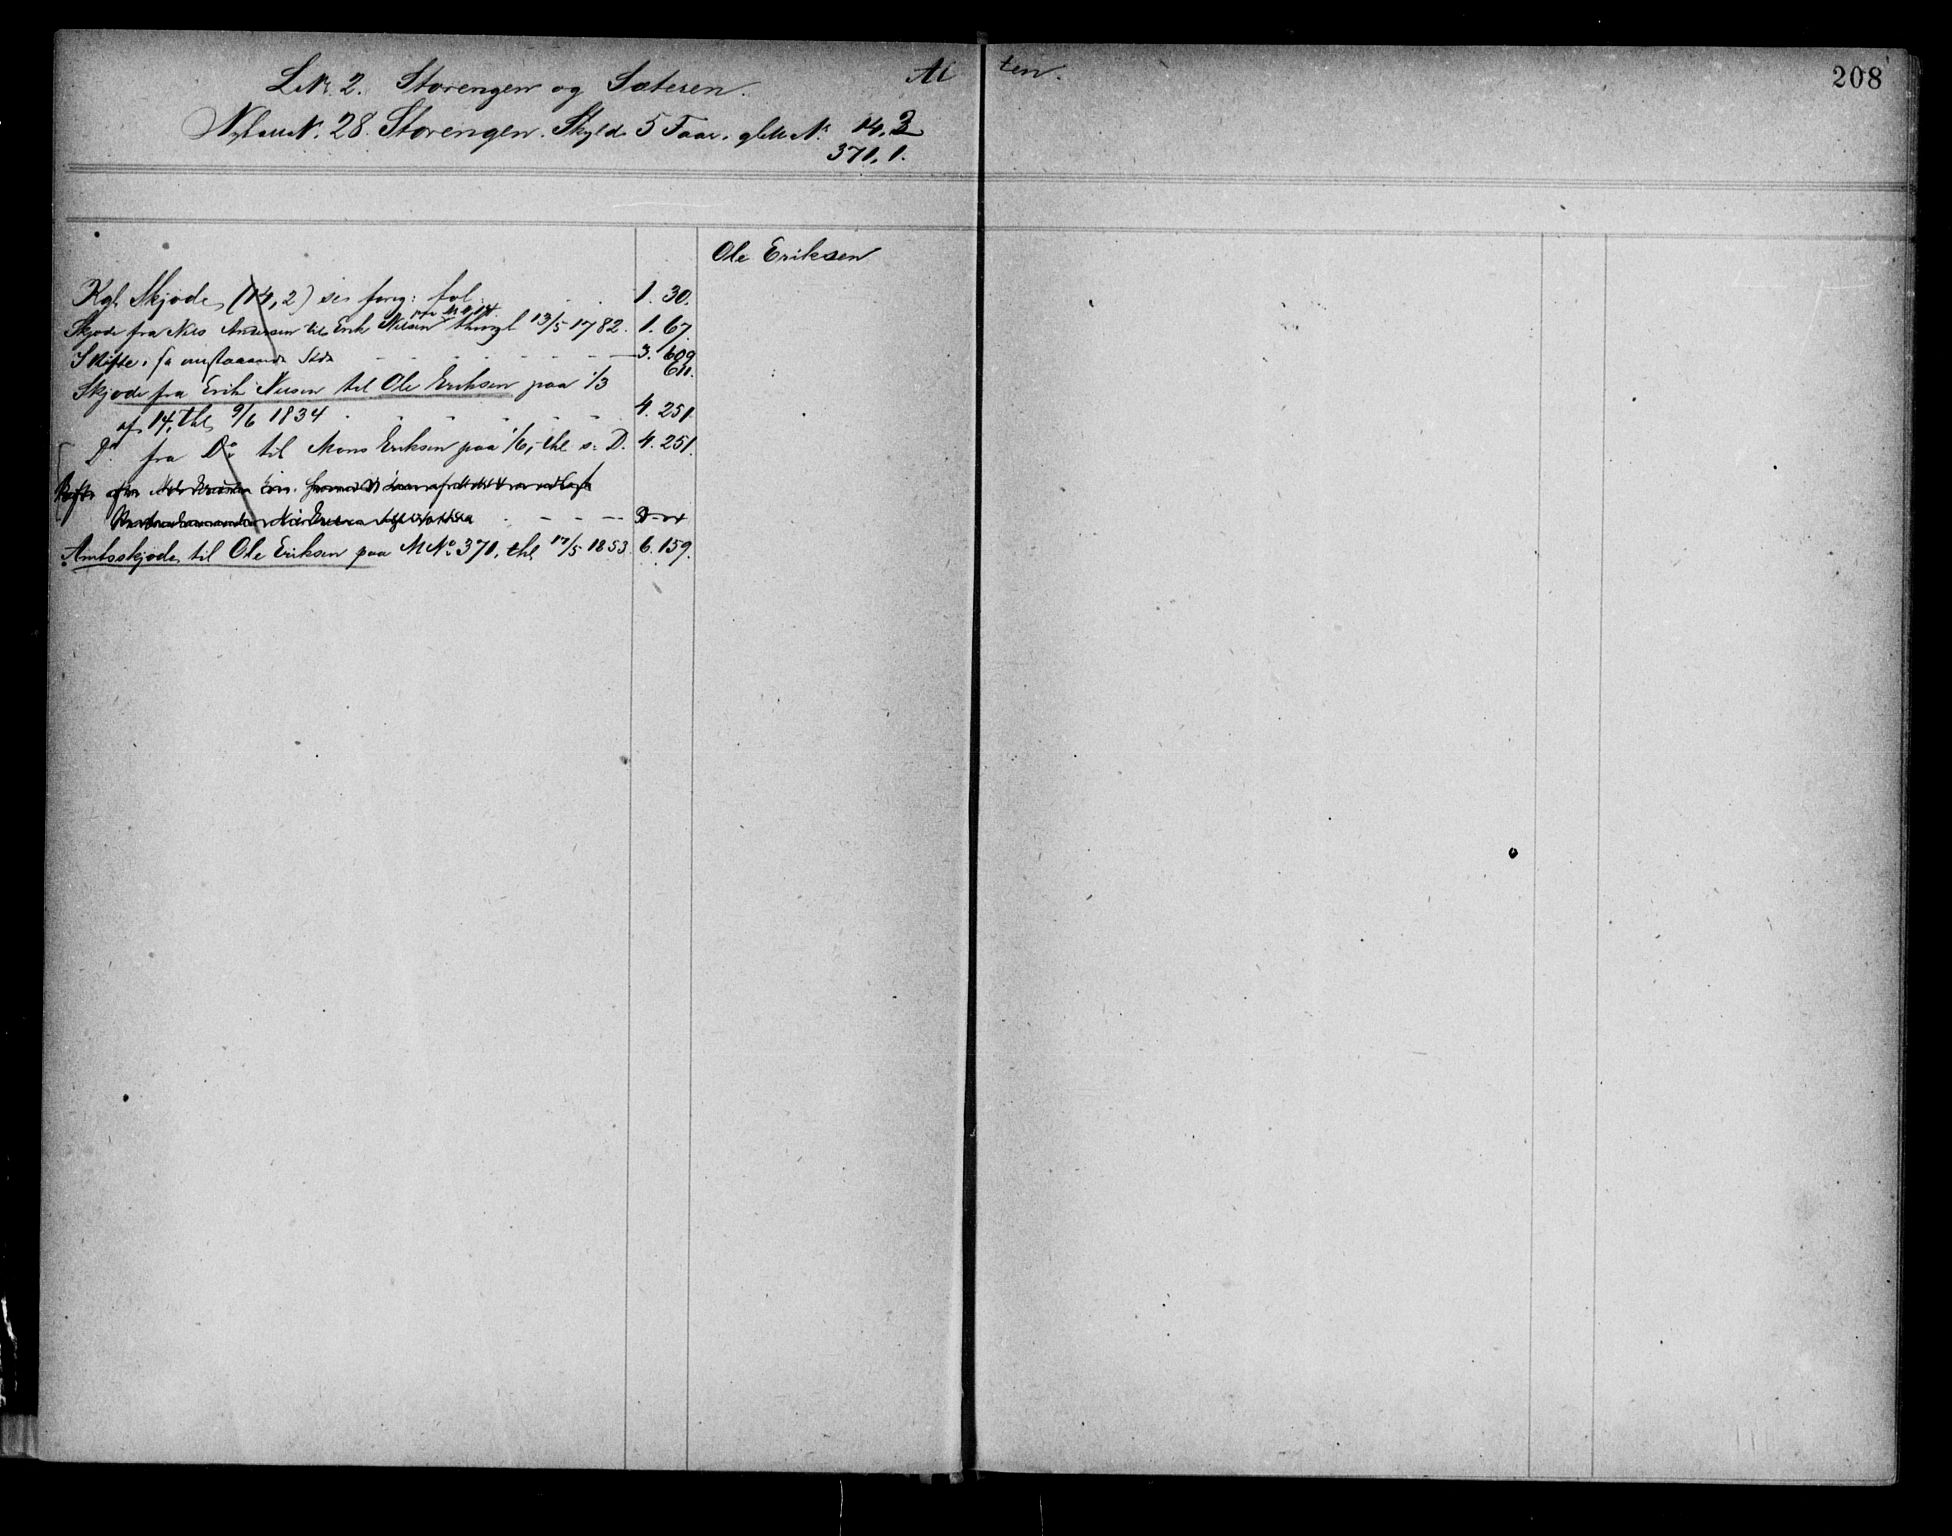 L.Nr. 2. Storengen og Sæteren. Al ten. 208
Nyt M.N. 28. Storengen. Skyld 5 Skar. gl. M.N. 14, 2
371, 1.
Ole Eriksen
Kgl. Skjøde (14, 2) se forrg: fol: 1. 30.
Skjøde fra Nils Andersen til Erik Nilsen paa M N 14. thingl 13/5 1782. 1. 67.
Skifte, se omstaaende Side 3. 609
611.
Skjøde fra Erik Nilsen til Ole Eriksen paa 1/3
af 14, thl. 9/6 1834 4. 251.
Do fra Do til Mons Eriksen paa 1/6, thl s. D. 4. 251.
Skifte efter
Amtsskjøde til Ole Eriksen paa M No 371, thl 17/5 1853. 6. 159.